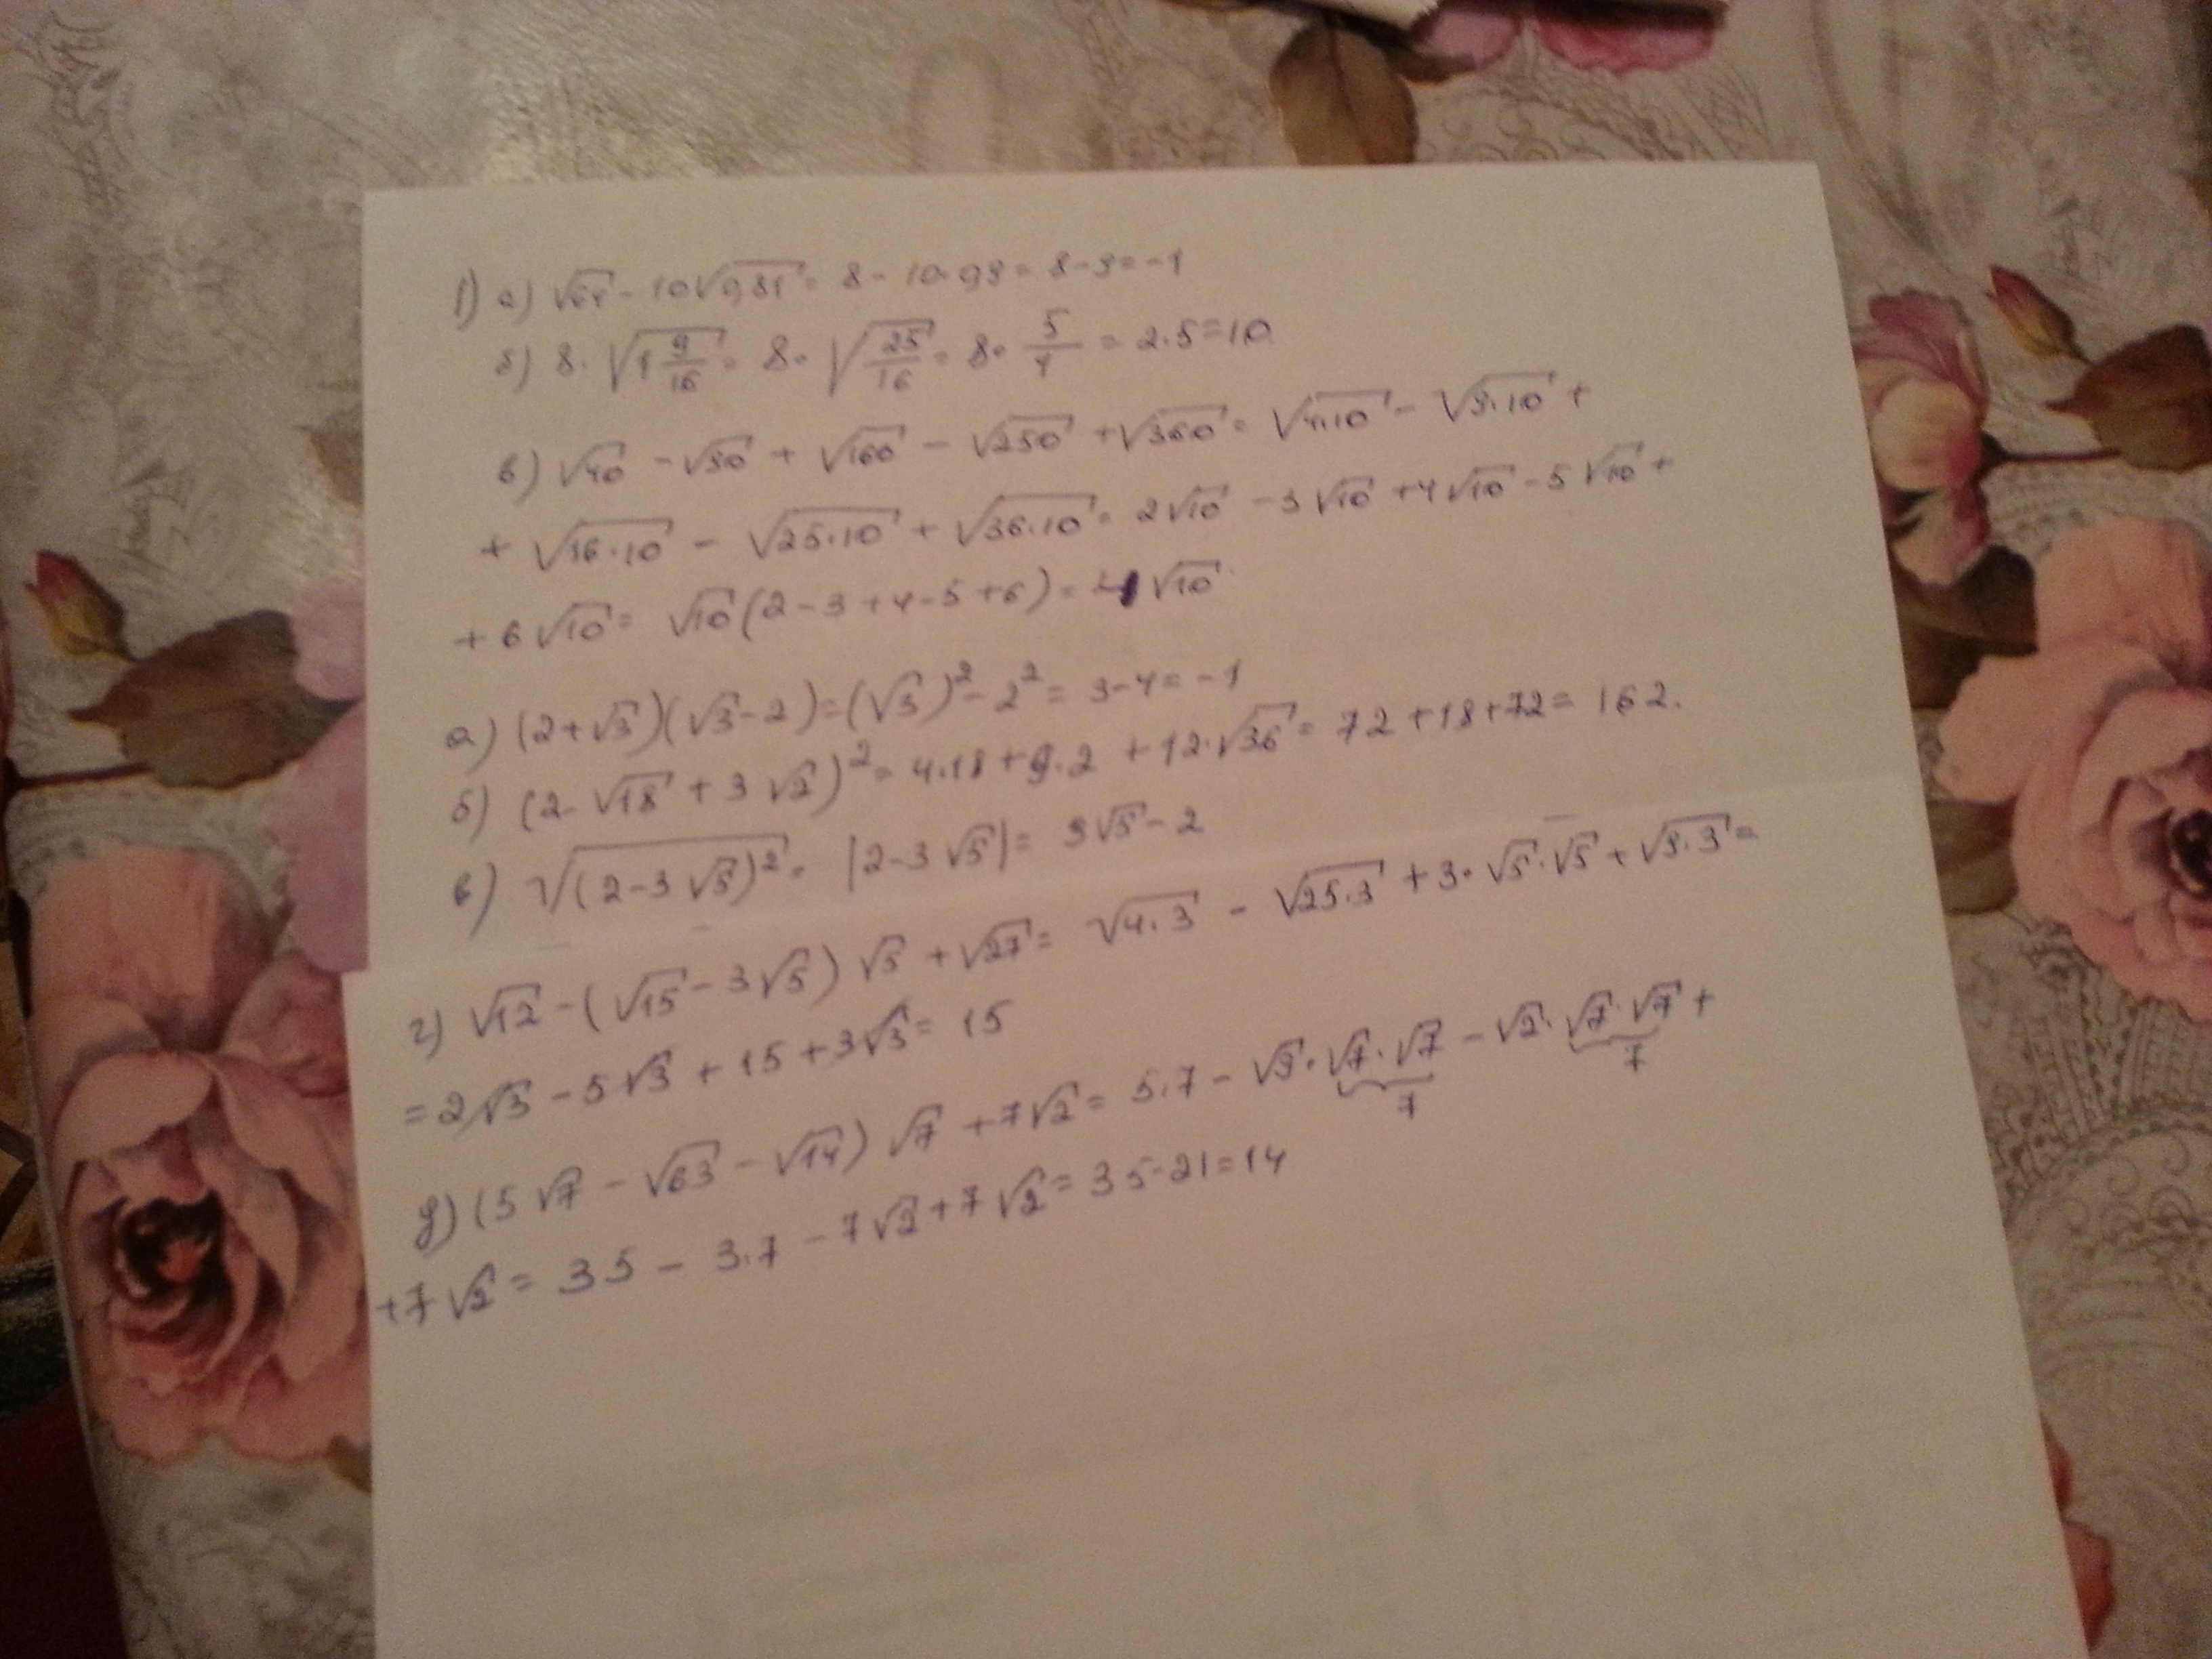 1) а) √64 - 10√0,81 = 8 - 10·0,9 = 8 - 9 = -1
б) 8·√(1 9/16) = 8·√(25/16) = 8·5/4 = 2·5 = 10
в) √40 - √90 + √160 - √250 + √360 = √4·10 - √9·10 +
+ √16·10 - √25·10 + √36·10 = 2√10 - 3√10 + 4√10 - 5√10 +
+ 6√10 = √10(2 - 3 + 4 - 5 + 6) = 4√10
а) (2+√3)(√3-2) = (√3)² - 2² = 3 - 4 = -1
б) (2√18 + 3√2)² = 4·18 + 9·2 + 12·√36 = 72 + 18 + 72 = 162.
в) √(2-3√5)² = |2-3√5| = 3√5 - 2
г) √12 - (√15 - 3√5)√5 + √27 = √4·3 - √25·3 + 3·√5·√5 + √9·3 =
= 2√3 - 5√3 + 15 + 3√3 = 15
д) (5√7 - √63 - √14)√7 + 7√2 = 5·7 - √9·√7·√7 - √2·√7·√7 +
7 7
+7√2 = 35 - 3·7 - 7√2 + 7√2 = 35 - 21 = 14